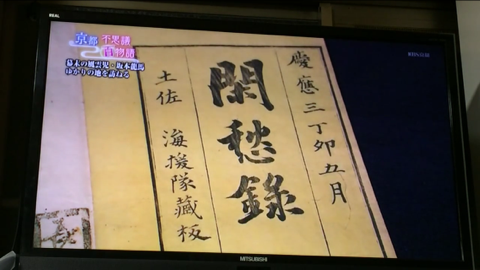 京都
不思議
百物語
幕末の風雲児・坂本龍馬
ゆかりの地を訪ねる
慶應三丁卯五月
閑愁録
土佐 海援隊藏板
MITSUBISHI
REAL